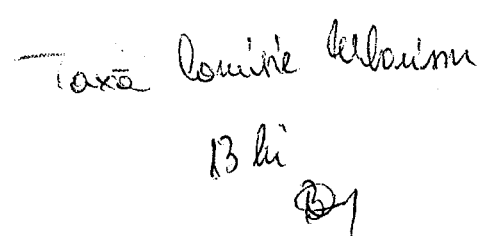 Taxă Comisie Urbanism
13 lei